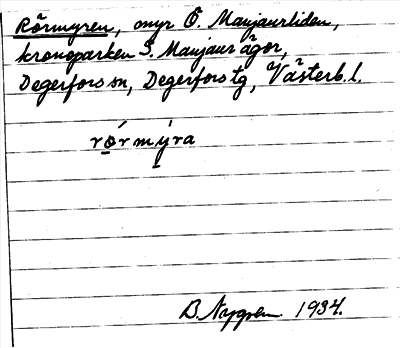 Rörmyren, myr Ö. Manjaurliden,
kronoparken S. Manjaur ägor,
Degerfors sn, Degerfors tg, Västerb. l.
rǫ́rmýra
B. Nygren 1934.